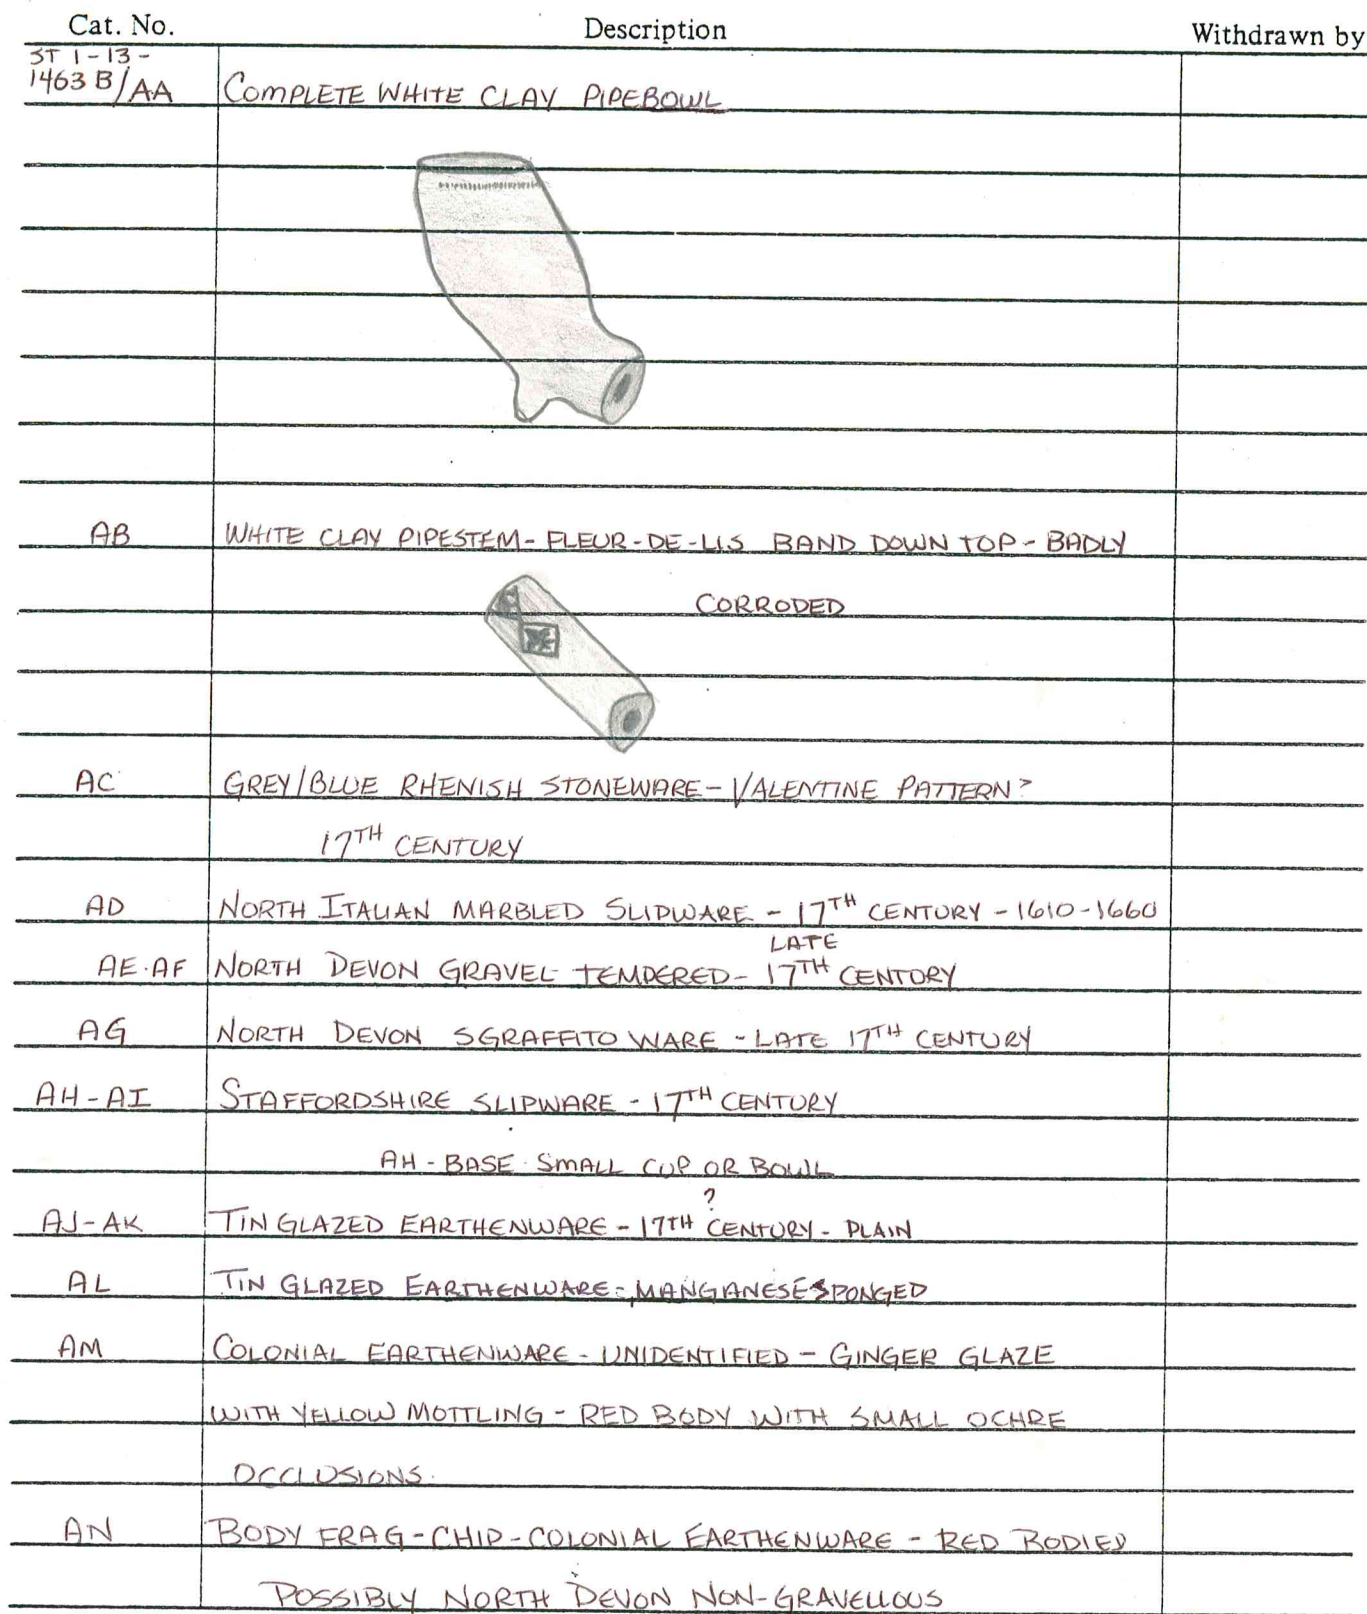 Cat. No. Description Withdrawn by
ST 1-13-
1463 B/AA COMPLETE WHITE CLAY PIPEBOWL
AB WHITE CLAY PIPESTEM - FLEUR-DE-LIS BAND DOWN TOP - BADLY
CORRODED
AC GREY/BLUE RHENISH STONEWARE - VALENTINE PATTERN?
17TH CENTURY
AD NORTH ITALIAN MARBLED SLIPWARE - 17TH CENTURY - 1610-1660
LATE
AE-AF NORTH DEVON GRAVEL TEMPERED - 17TH CENTORY
AG NORTH DEVON SGRAFFITO WARE - LATE 17TH CENTURY
AH-AI STAFFORDSHIRE SLIPWARE - 17TH CENTURY
AH - BASE SMALL CUP OR BOWL
?
AJ-AK TIN GLAZED EARTHENWARE - 17TH CENTURY - PLAIN
AL TIN GLAZED EARTHENWARE - MANGANESE SPONGED
AM COLONIAL EARTHENWARE - UNIDENTIFIED - GINGER GLAZE
WITH YELLOW MOTTLING - RED BODY WITH SMALL OCHRE
OCCLUSIONS.
AN BODY FRAG - CHIP - COLONIAL EARTHENWARE - RED BODIED
POSSIBLY NORTH DEVON NON-GRAVELLOUS